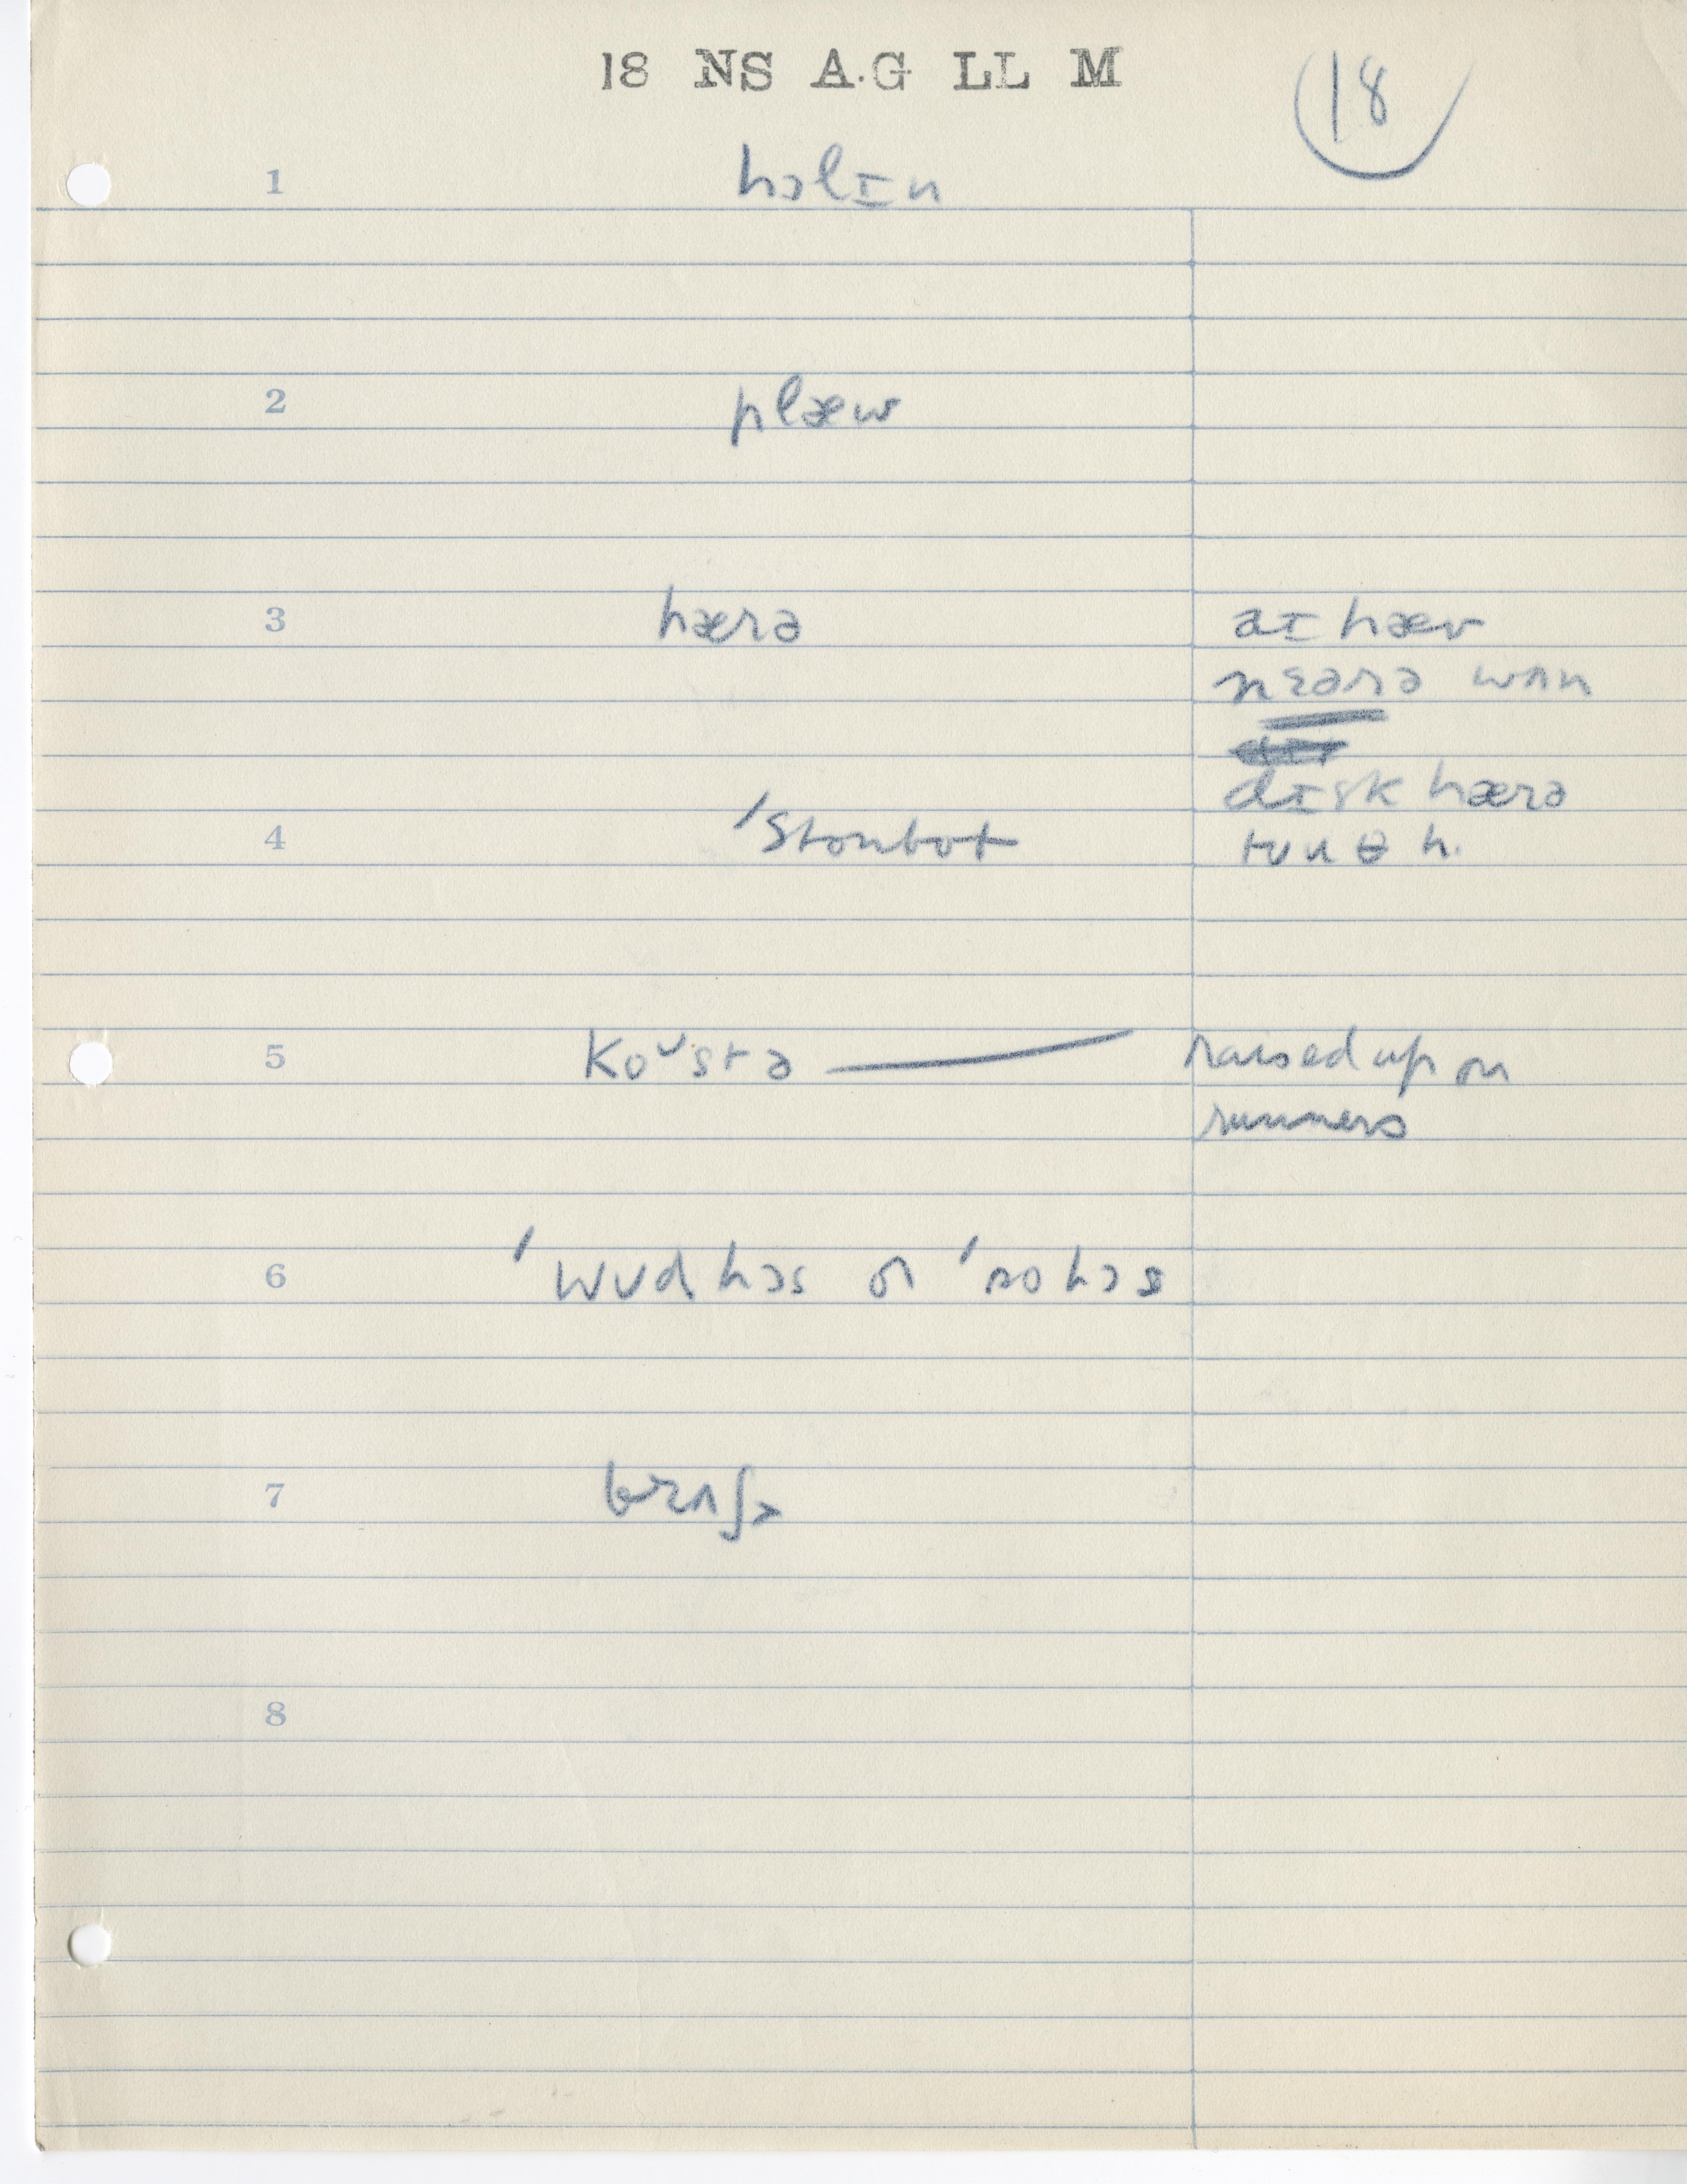 18 NS A.G LL M
18
1 hɔlɪn
2 plæw
3 hærə aɪ hæv
nɛərə wʌn
dɪsk hærə
4 ˈstonbot tuuθ h.
5 Koᴜstə raised up on
runners
6 ˈwʊdhɔs or ˈsohɔs
7
8